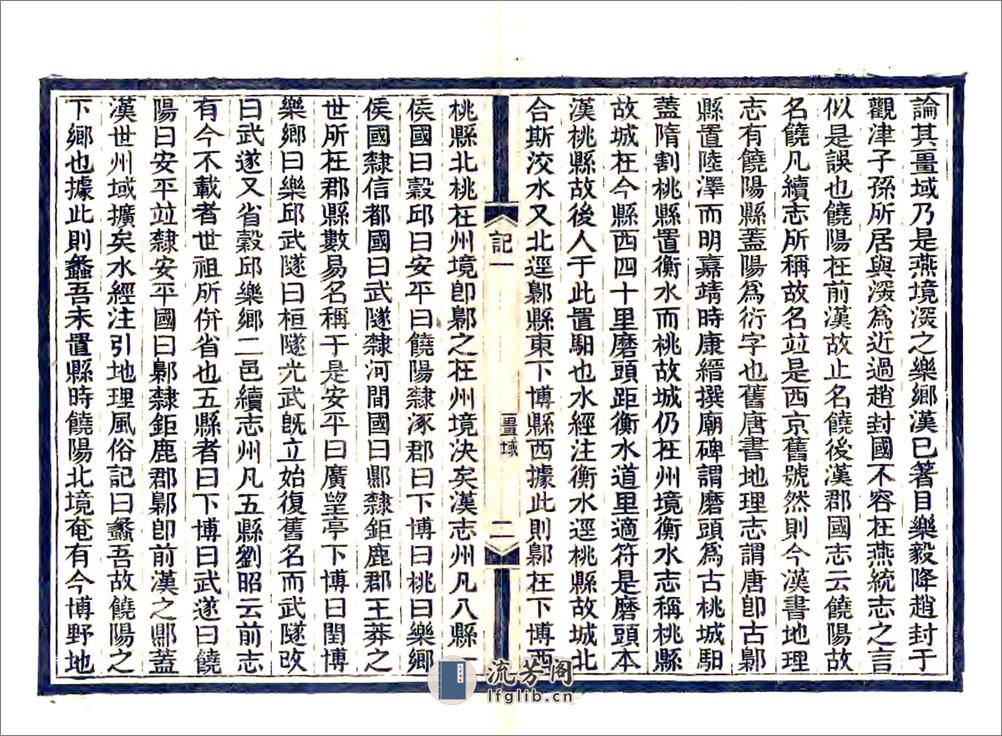 論其畺域乃是燕境深之樂鄉漢已著目樂毅降趙封于
觀津子孫所居與深為近過趙封國不容在燕統志之言
似是誤也饒陽在前漢故止名饒後漢郡國志云饒陽故
名饒凡續志所稱故名竝是西京舊號然則今漢書地理
志有饒陽縣蓋陽為衍字也舊唐書地理志謂唐卽古鄡
縣置陸澤而明嘉靖時康縉撰廟碑謂磨頭為古桃城馹
蓋隋割桃縣置衡水而桃故城仍在州境衡水志稱桃縣
故城在今縣西四十里磨頭距衡水道里適符是磨頭本
漢桃縣故後人于此置馹也水經注衡水逕桃縣故城北
合斯洨水又北逕鄡縣東下博縣西據此則鄡在下博西
記一
畺域
二
桃縣北桃在州境卽鄡之在州境決矣漢志州凡八縣一
侯國曰穀邱曰安平曰饒陽隸涿郡曰下博曰桃曰樂鄉
侯國隸信都國曰武隧隸河間國曰鄡隸鉅鹿郡王莽之
世所在郡縣數易名稱于是安平曰廣望亭下博曰閏博
樂鄉曰樂邱武隧曰桓隧光武旣立始復舊名而武隧改
曰武遂又省穀邱樂鄉二邑續志州凡五縣劉昭云前志
有今不載者世祖所併省也五縣者曰下博曰武遂曰饒
陽曰安平竝隸安平國曰鄡隸鉅鹿郡鄡卽前漢之鄡蓋
漢世州域擴矣水經注引地理風俗記曰蠡吾故饒陽之
下鄉也據此則蠡吾未置縣時饒陽北境奄有今博野地
流芳阁
lfglib.cn